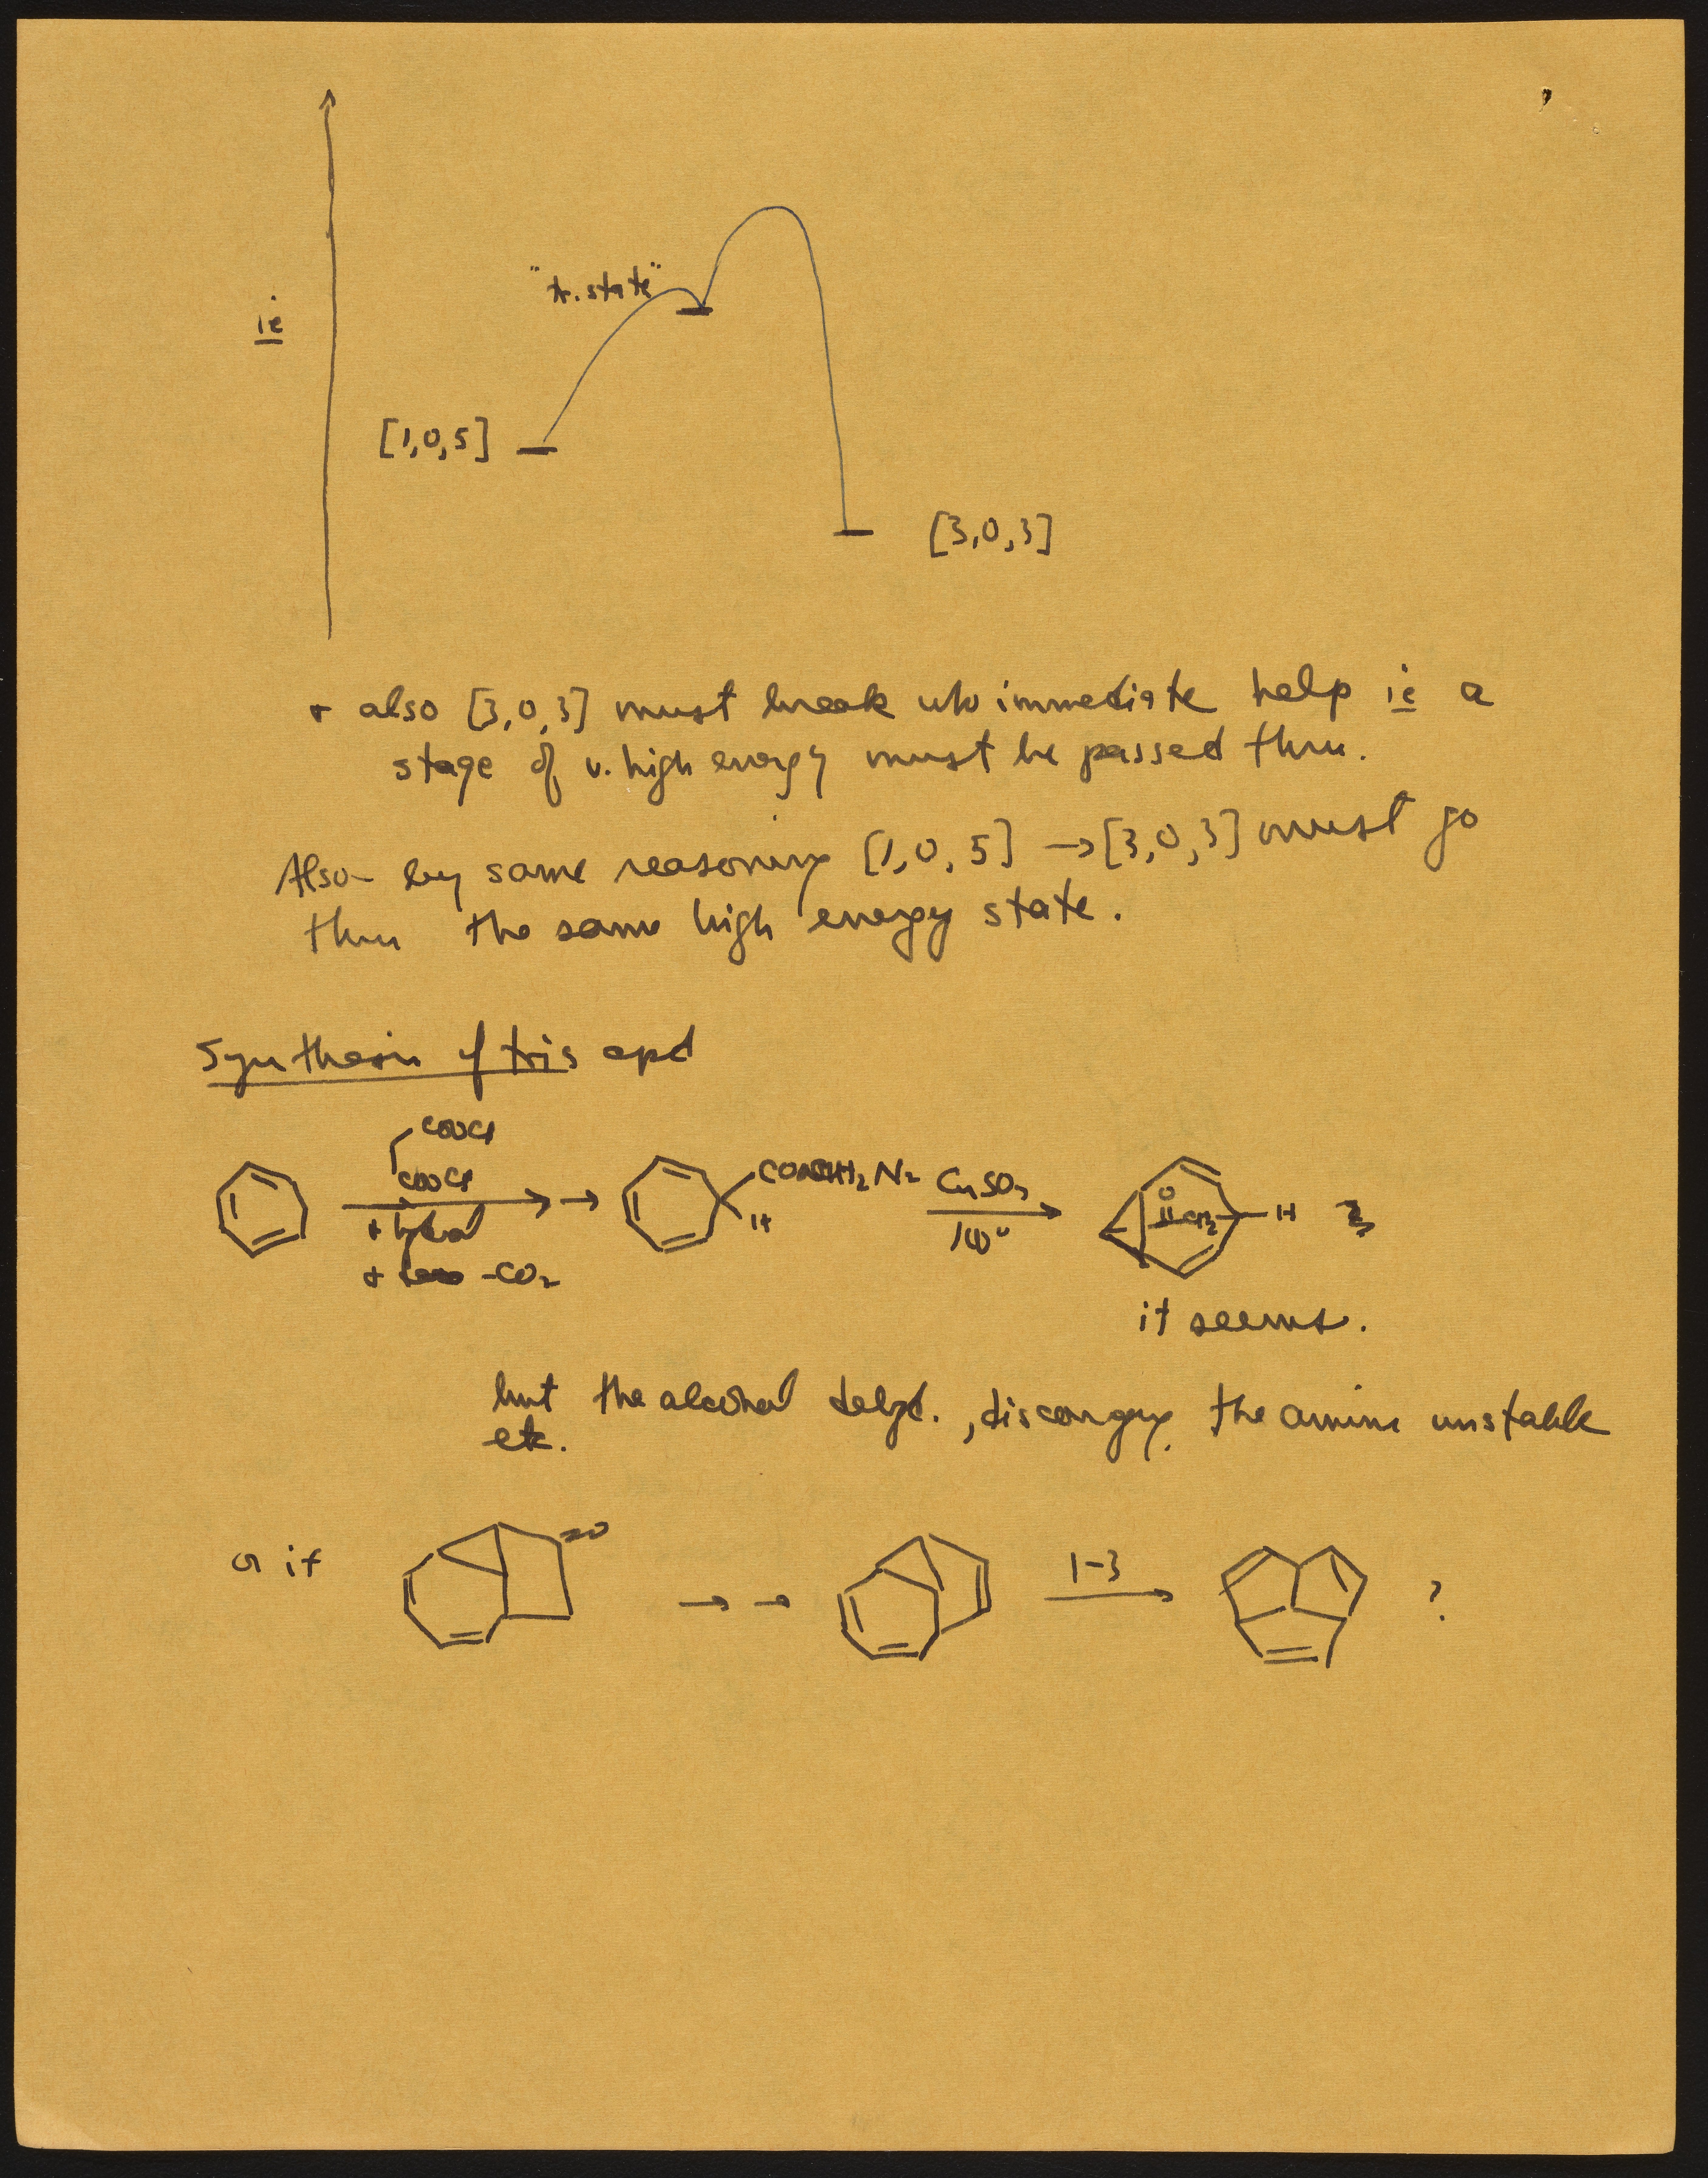 "tr. state"
ie
[1,0,5]
[3,0,3]
+ also [3,0,3] must break w/o immediate help ie a
stage of v. high energy must be passed thru.
Also by same reasoning [1,0,5] → [3,0,3] must go
thru the same high energy state.
Synthesis of tris cpd
COOCl
COOCl
+ hydrol
+ -CO2
H
CuSO4
100°
O
CH2
H
it seems.
but the alcohol dehyd., discouraging, the amine unstable
etc.
or if
=O
→ →
1-3
?